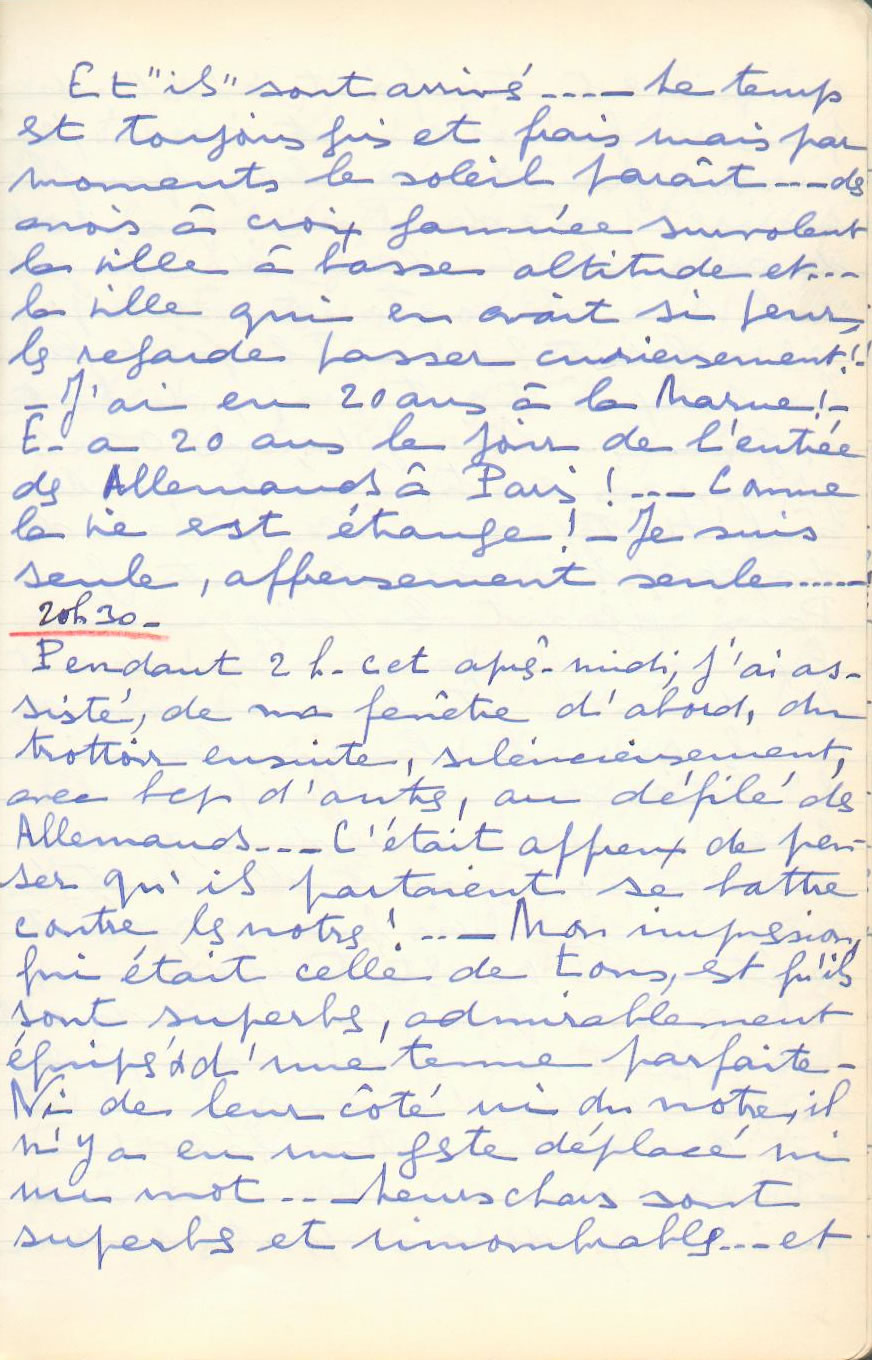 Et "ils" sont arrivé .... — Le temps
est toujours gris et frais mais par
moments le soleil paraît --- des
avions à croix gammée survolent
la ville à basse altitude et ---
la ville qui en avait si peur,
les regarde passer curieusement !!
- J'ai eu 20 ans à la Marne ! -
E. a 20 ans le jour de l'entrée
des Allemands à Paris ! --- Comme
la vie est étrange ! - Je suis
seule, affreusement seule ......
20h30 -
Pendant 2 h. cet après-midi, j'ai as-
sisté, de ma fenêtre d'abord, du
trottoir ensuite, silencieusement,
avec bcp d'autres, au défilé des
Allemands --- C'était affreux de pen-
ser qu'ils partaient se battre
contre les notres ! --- Mon impression,
qui était celle de tous, est qu'ils
sont superbes, admirablement
équipés & d'une tenue parfaite -
Ni de leur côté ni du notre, il
n'y a eu un geste déplacé ni
un mot --- Leurs chars sont
superbes et innombrables --- et